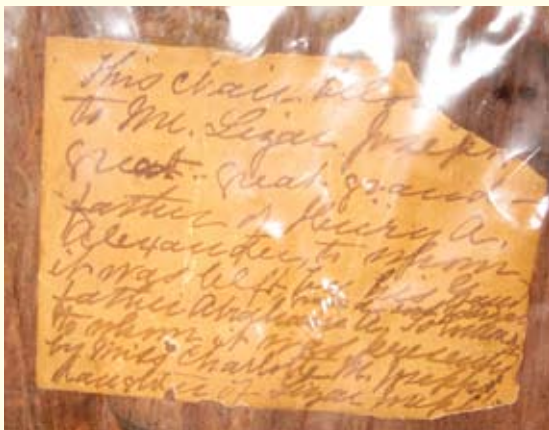 This chair
to Mr. Lizar Joseph
great great grand-
father of Henry A.
Alexander, to whom
it was left by his
father Abraham A.
to whom it was
by Miss Charlotte M. Joseph
daughter of Lizar